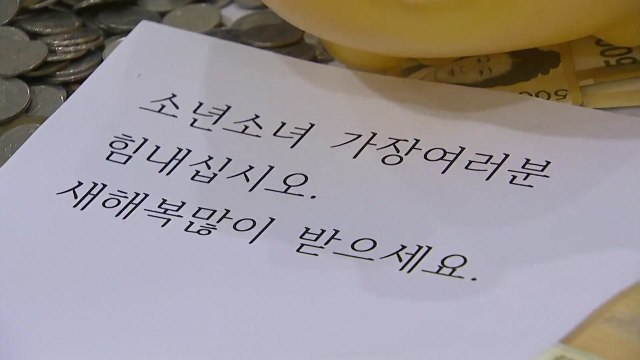 소년소녀 가장여러분
힘내십시오.
새해복많이 받으세요.